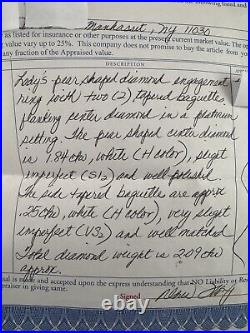 Manhasset, NY 11030
as listed for insurance or other purposes at the present current market value. The
value vary up to 25%. This company does not promise to buy the article from you
any fraction of the Appraised value.
DESCRIPTION
Lady's pear shaped diamond engagement
ring with two (2) tapered baguettes
flanking center diamond in a platinum
setting. The pear shaped center diamond
is 1.84 cts, white (H color), slight
imperfect (SI2) and well polished.
The side tapered baguette are approx
.25 cts, white (H color), very slight
imperfect (VS2) and well matched.
Total diamond weight is 2.09 ctw
approx.
is made and accepted upon the express understanding that NO Liability or
appraiser in giving same.
Signed